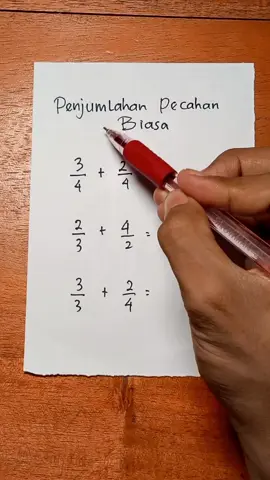 Penjumlahan Pecahan
Biasa
3/4 + 2/4
2/3 + 4/2 =
3/3 + 2/4 =